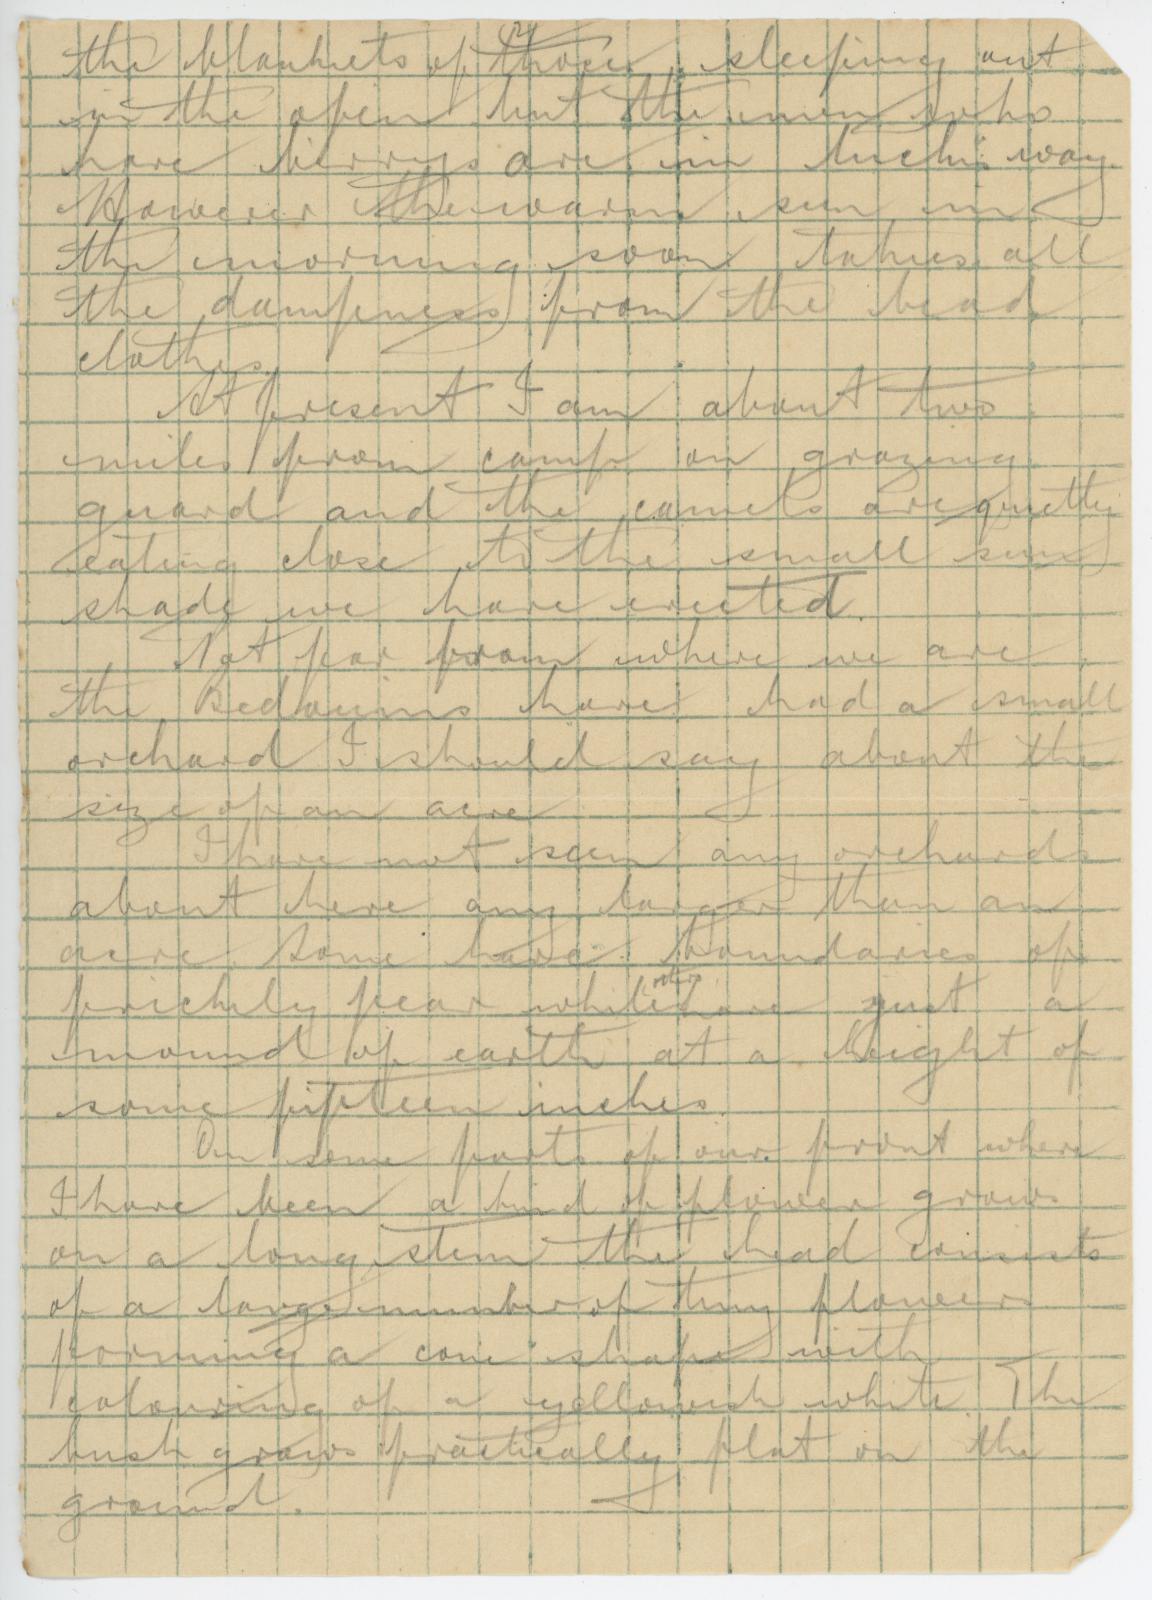 the blankets of those sleeping out
in the open but the men who
have bivvys are in luck's way
However the warm sun in
the morning soon takes all
the dampness from the bead
clothes.
At present I am about two
miles from camp on grazing
guard and the camels are quietly
eating close to the small sun
shade we have erected.
Not far from where we are
the Bedouins have had a small
orchard I should say about the
size of an acre
I have not seen any orchards
about here any larger than an
acre. Some have boundaries of
prickly pear while others have just a
mound of earth at a height of
some fifteen inches.
On some parts of our front where
I have been a kind of flower grows
on a long stem the head consists
of a large number of tiny flowers
forming a cone shape with
colouring of a yellowish white. The
bush grows practically flat on the
ground.